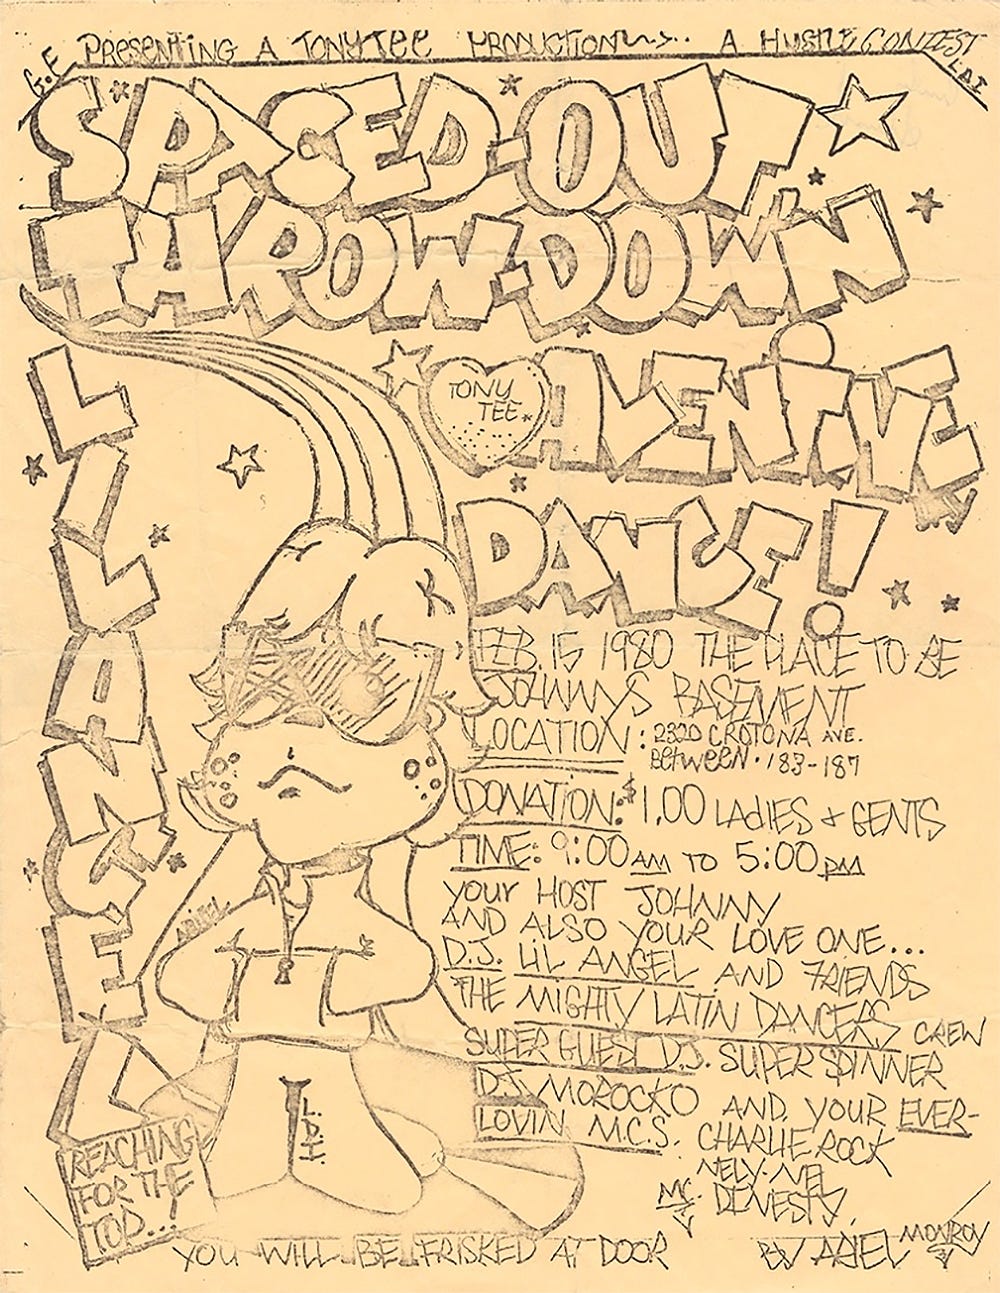 PRESENTING A TONY TEE PRODUCTION... A HUSTLE CONTEST
G.E
SPACED-OUT
THROW-DOWN
TONY
TEE
ALENTINE
DANCE!
LIL ANGEL
FEB. 15 1980 THE PLACE TO BE
JOHNNYS BASEMENT
LOCATION: 2320 CROTONA AVE.
BETWEEN. 183-187
DONATION: $1.00 LADIES & GENTS
TIME: 9:00 AM TO 5:00 PM
YOUR HOST JOHNNY
AND ALSO YOUR LOVE ONE...
D.J. LIL ANGEL AND FRIENDS
THE MIGHTY LATIN DANCERS CREW
SUPER GUEST D.J. SUPER SPINNER
D.J. MOROCKO AND YOUR EVER-
LOVIN M.C.S. CHARLIE ROCK
NELY-NEL
MC. DENESTY
ARIEL
L.D.I.
REACHING
FOR THE
TOP...!
YOU WILL BE FRISKED AT DOOR
BY ARIEL MONROY